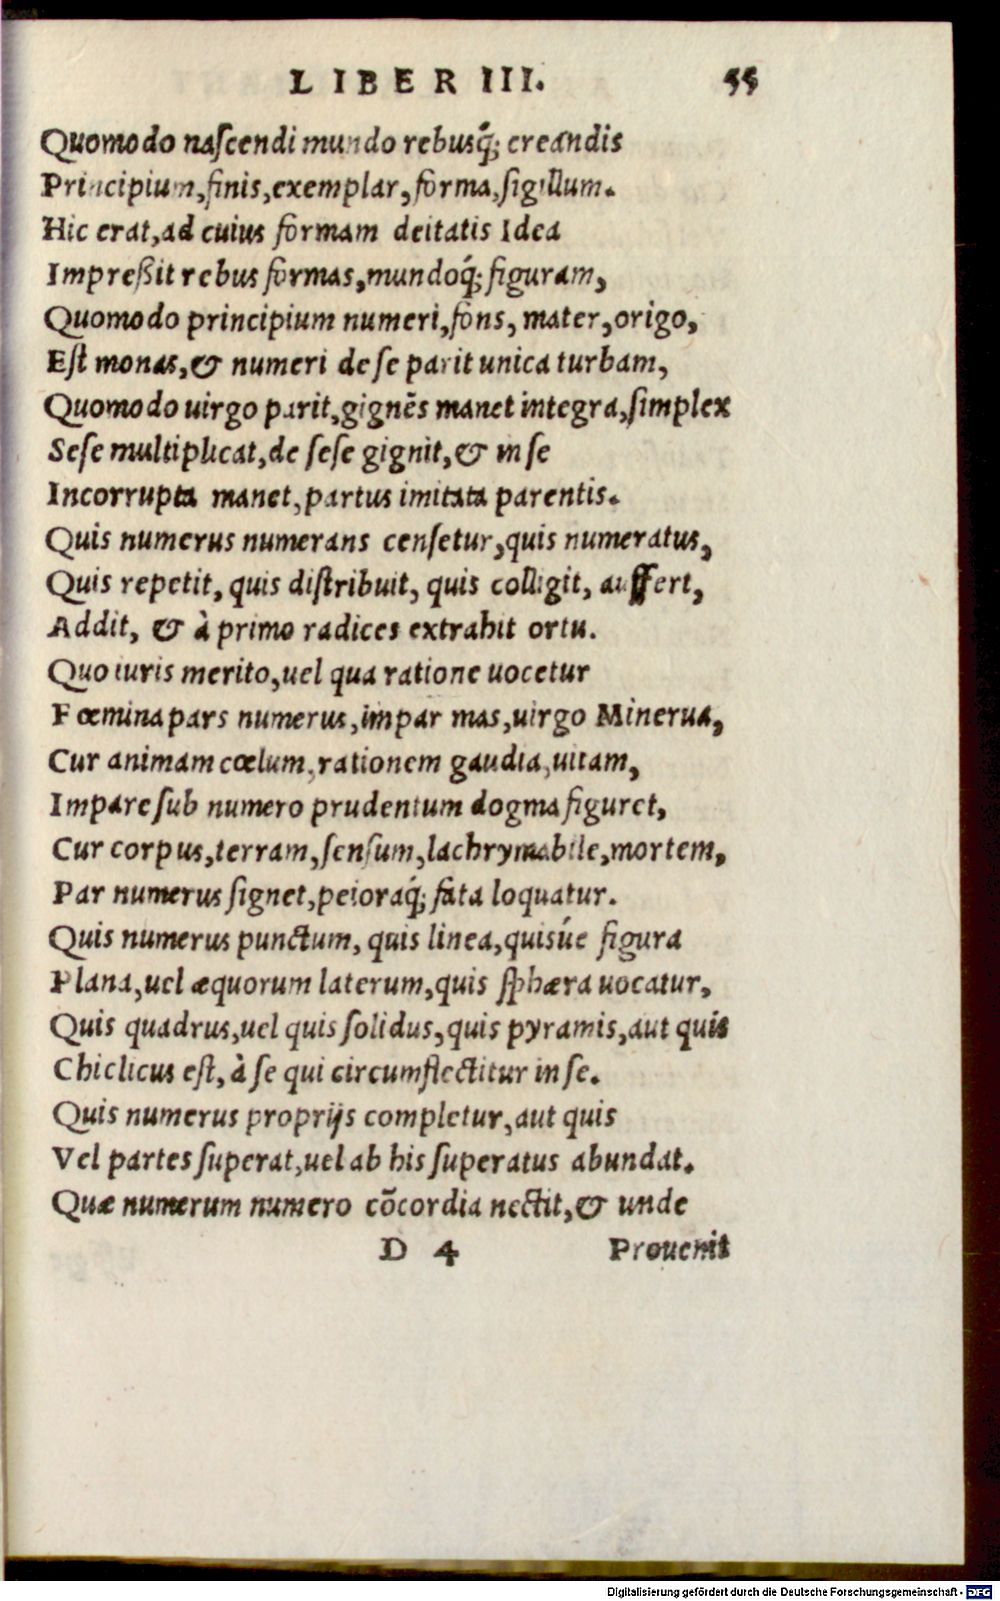 LIBER III. 55
Quomodo naſcendi mundo rebusq́; creandis
Principium, finis, exemplar, forma, ſigillum.
Hic erat, ad cuius formam deitatis Idea
Impreßit rebus formas, mundoq́; figuram,
Quomodo principium numeri, fons, mater, origo,
Eſt monas, & numeri de ſe parit unica turbam,
Quomodo uirgo parit, gignẽs manet integra, ſimplex
Seſe multiplicat, de ſeſe gignit, & in ſe
Incorrupta manet, partus imitata parentis.
Quis numerus numerans cenſetur, quis numeratus,
Quis repetit, quis diſtribuit, quis colligit, auffert,
Addit, & à primo radices extrahit ortu.
Quo iuris merito, uel qua ratione uocetur
Fœmina pars numerus, impar mas, uirgo Minerua,
Cur animam cœlum, rationem gaudia, uitam,
Impare ſub numero prudentum dogma figuret,
Cur corpus, terram, ſenſum, lachrymabile, mortem,
Par numerus ſignet, peioraq́; fata loquatur.
Quis numerus punctum, quis linea, quisúe figura
Plana, uel æquorum laterum, quis ſphæra uocatur,
Quis quadrus, uel quis ſolidus, quis pyramis, aut quis
Chiclicus eſt, à ſe qui circumflectitur in ſe.
Quis numerus proprijs completur, aut quis
Vel partes ſuperat, uel ab his ſuperatus abundat.
Quæ numerum numero cõcordia nectit, & unde
D 4 Prouenit
Digitalisierung gefördert durch die Deutsche Forschungsgemeinschaft - DFG